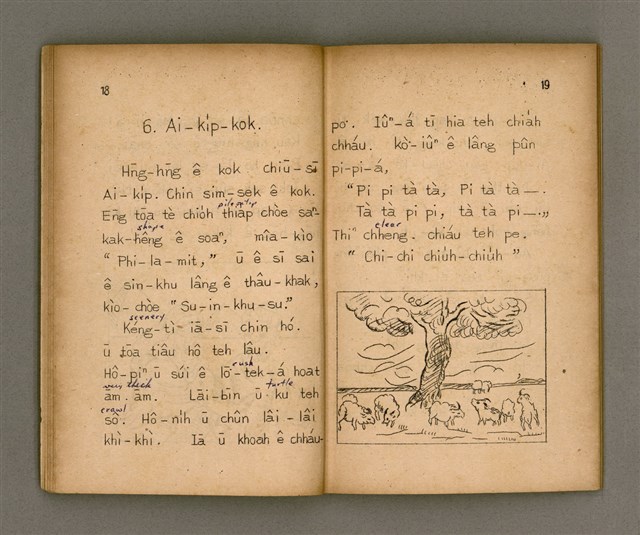 18
6. Ai-ki̍p-kok.
Hn̄g-hn̄g ê kok chiū-sī
Ai-ki̍p. Chin sim-sek ê kok.
pile up
Eng tōa tè chio̍h thia̍p chòe saⁿ-
shape
kak-hêng ê soaⁿ, mîa-kìo
“Phi-la-mit,” ū ê sī sai
ê sin-khu lâng ê thâu-khak,
kìo-chòe “Su-in-khu-su.”
scenery
Kéng-tì iā-sī chin hó.
ū tōa tiâu hô teh lâu.
rush
Hô-piⁿ ū súi ê lō͘-tek-á hoat
very thick turtle
ām-ām. Lāi-bīn ū ku teh
crawl
sô. Hô-ni̍h ū chûn lâi-lâi
khì-khì. Iā ū khoah ê chháu-
19
po͘. Iûⁿ-á tī hia teh chia̍h
chháu. kò͘-iûⁿ ê lâng pûn
pi-pi-á,
“Pi pi tà tà, Pi tà tà—.
Tà tà pi pi, tà tà pi—.„
clear
Thiⁿ chheng. chiáu teh pe.
“Chi-chi chiu̍h-chiu̍h”